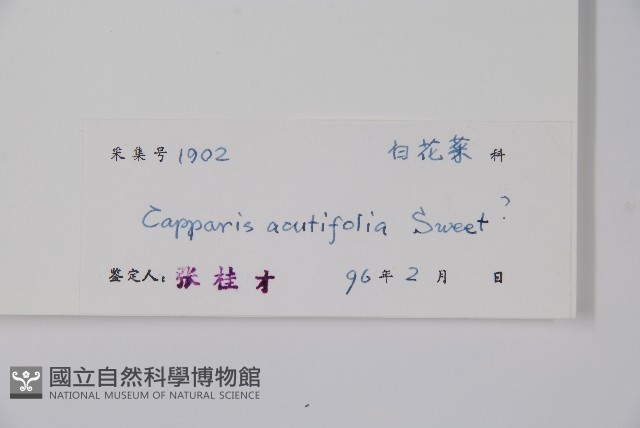 采集号 1902 白花菜 科
Capparis acutifolia Sweet ?
鉴定人: 张桂才 96 年 2 月 日
國立自然科學博物館
NATIONAL MUSEUM OF NATURAL SCIENCE